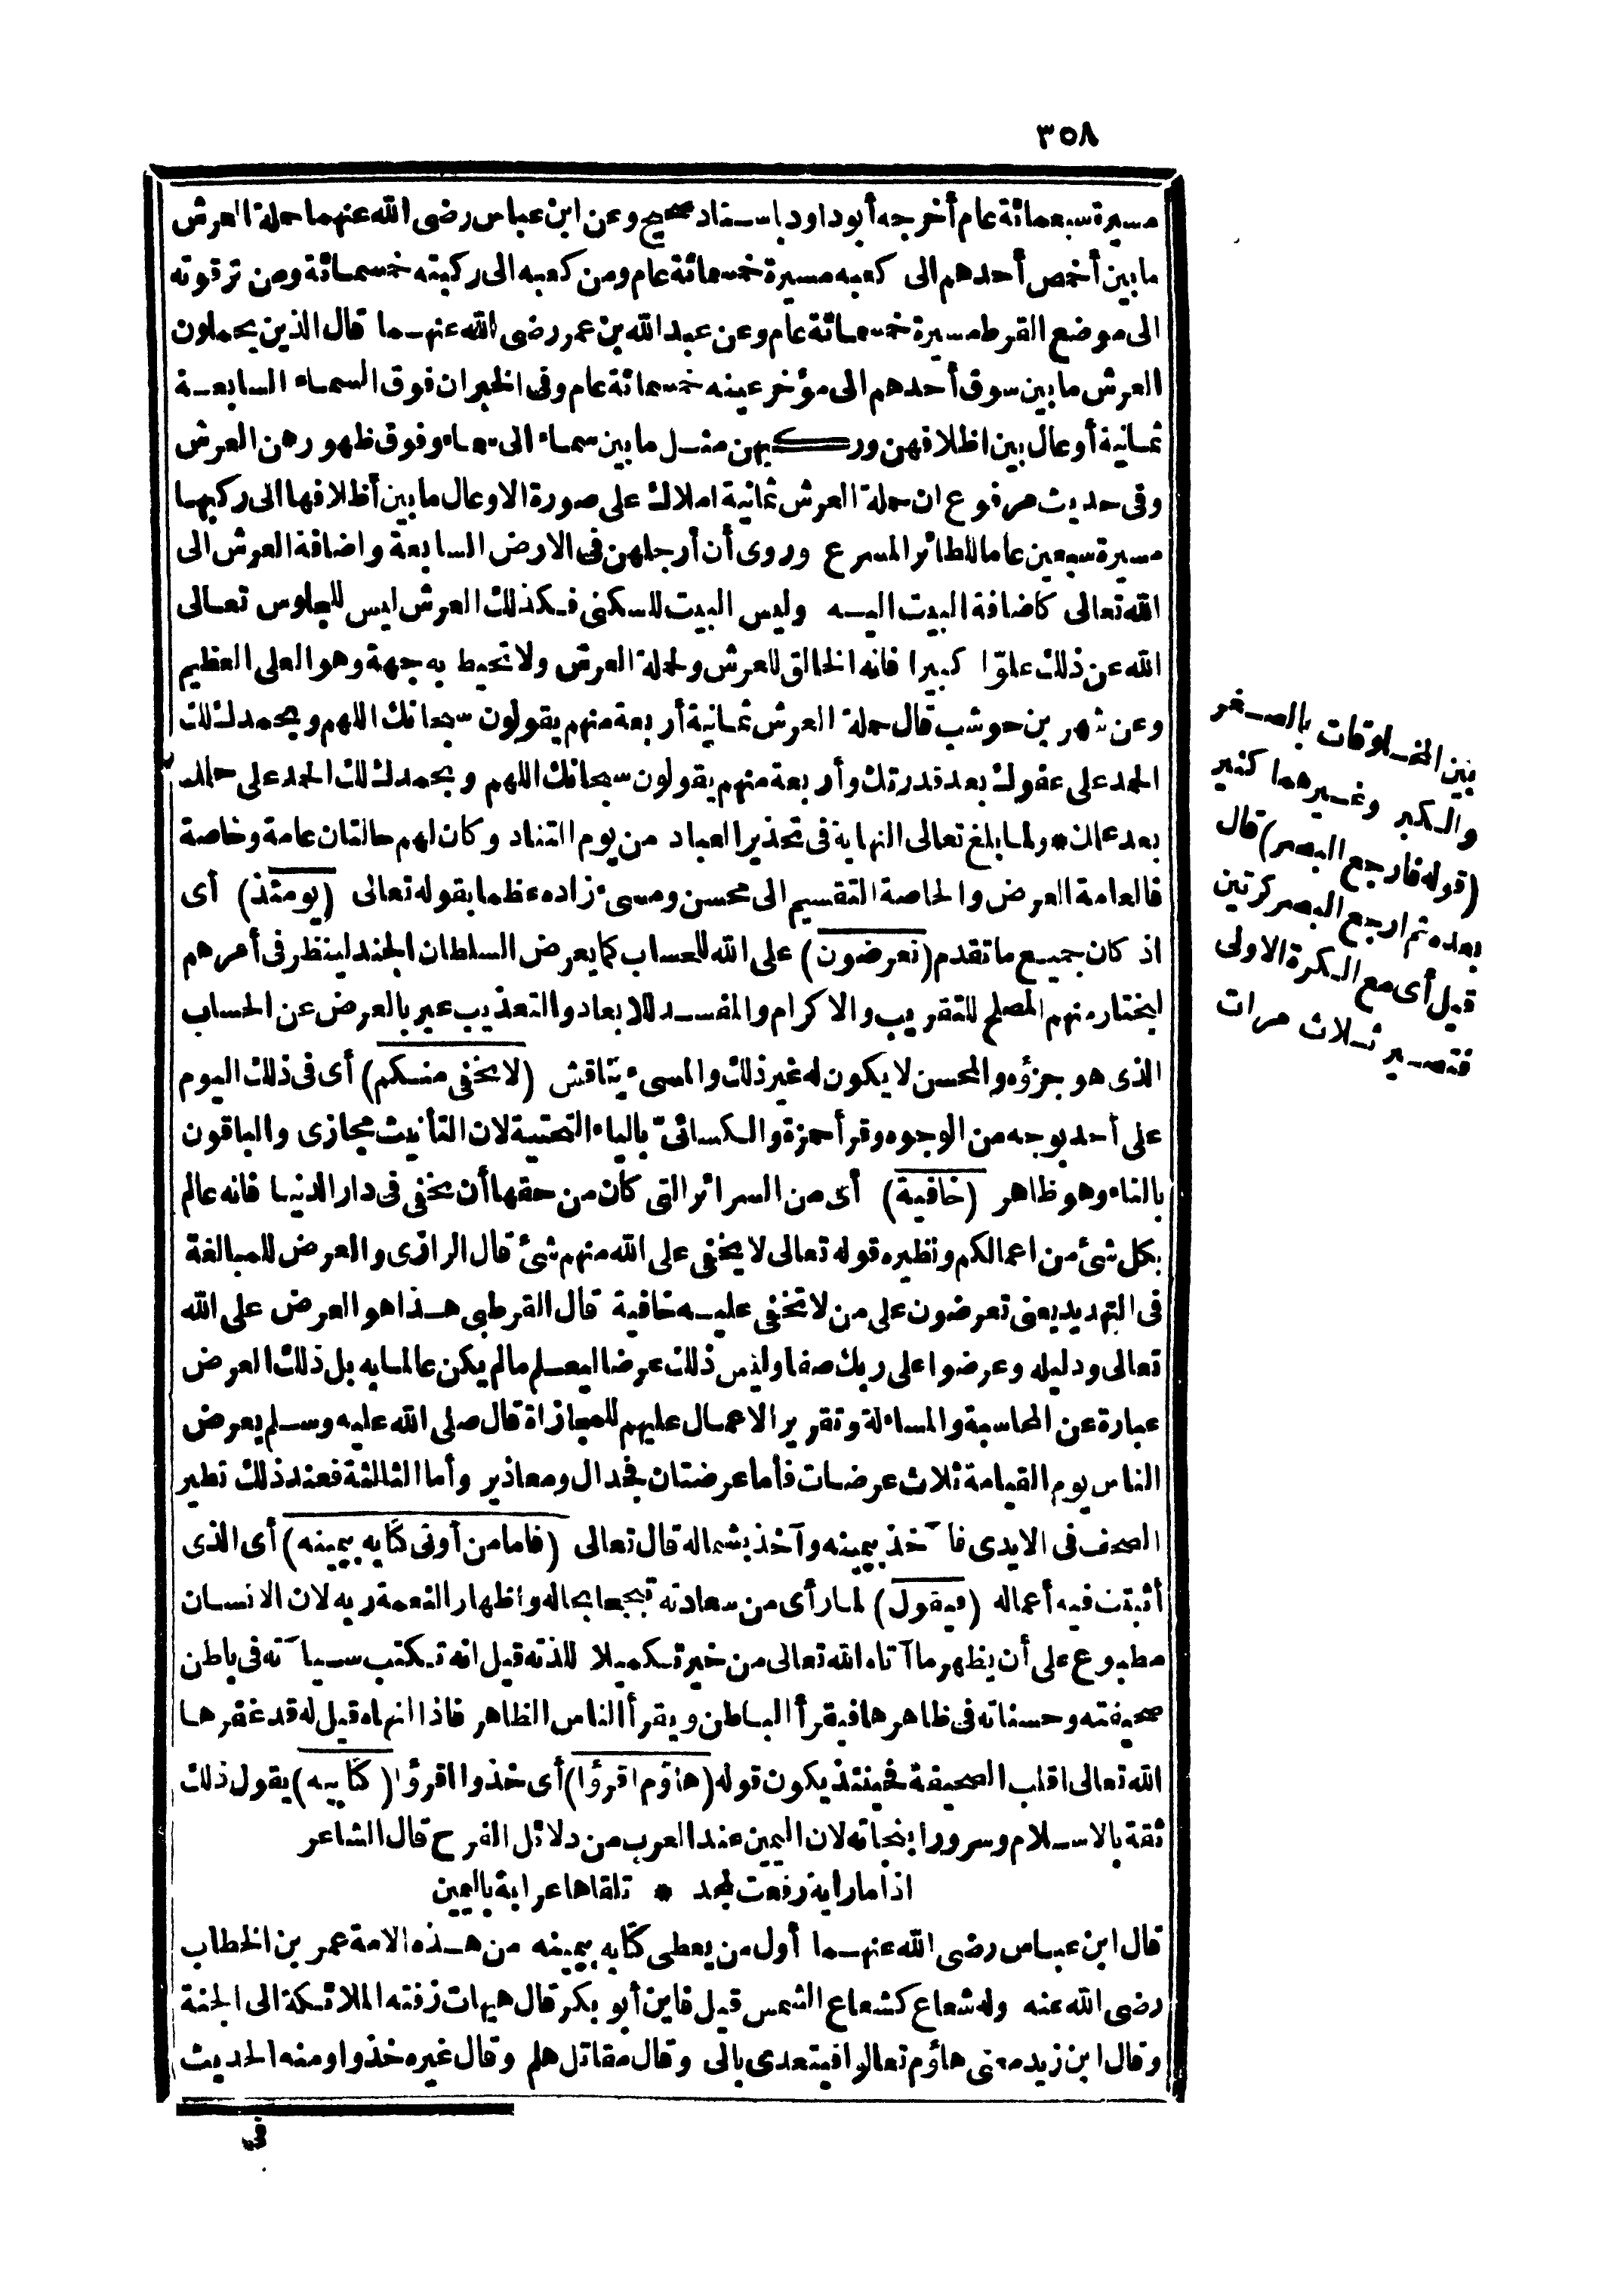 ٣٥٨
مسيرة سبعمائة عام أخرجه أبو داود باسناد صحيح وعن ابن عباس رضى الله عنهما حملة العرش
ما بين أخمص أحدهم الى كعبه مسيرة خمسمائة عام ومن كعبه الى ركبته خمسمائة ومن ترقوته
الى موضع القرط مسيرة خمسمائة عام وعن عبد الله بن عمر رضى الله عنهما قال الذين يحملون
العرش ما بين سوق أحدهم الى مؤخر عينه خمسمائة عام وفى الخبر ان فوق السماء السابعة
ثمانية أوعال بين اظلافهن وركبهن مثل ما بين سماء الى سماء وفوق ظهورهن العرش
وفى حديث مرفوع ان حملة العرش ثمانية املاك على صورة الاوعال ما بين أظلافها الى ركبها
مسيرة سبعين عاما للطائر المسرع وروى أن أرجلهن فى الارض السابعة واضافة العرش الى
الله تعالى كاضافة البيت اليه وليس البيت للسكنى فكذلك العرش ليس للجلوس تعالى
الله عن ذلك علوّا كبيرا فانه الخالق للعرش ولحملة العرش ولا تحيط به جهة وهو العلى العظيم
وعن شهر بن حوشب قال حملة العرش ثمانية أربعة منهم يقولون سبحانك اللهم وبحمدك لك
الحمد على عفوك بعد قدرتك وأربعة منهم يقولون سبحانك اللهم وبحمدك لك الحمد على حلمك
بعد علمك * ولما بلغ تعالى النهاية فى تحذير العباد من يوم التناد وكان لهم حالتان عامة وخاصة
فالعامة العرض والخاصة التقسيم الى محسن ومسىء زاده عظما بقوله تعالى (يومئذ) أى
اذ كان جميع ما تقدم (تعرضون) على الله للحساب كما يعرض السلطان الجند لينظر فى أمرهم
ليختار منهم المصلح للتقريب والاكرام والمفسد للابعاد والتعذيب عبر بالعرض عن الحساب
الذى هو جزؤه والمحسن لا يكون له غير ذلك والمسىء يناقش (لا تخفى منكم) أى فى ذلك اليوم
على أحد بوجه من الوجوه وقرأ حمزة والكسائىّ بالياء التحتية لان التأنيث مجازى والباقون
بالتاء وهو ظاهر (خافية) أى من السرائر التى كان من حقها أن تخفى فى دار الدنيا فانه عالم
بكل شئ من اعمالكم ونظيره قوله تعالى لا يخفى على الله منهم شئ قال الرازى والعرض للمبالغة
فى التهديد يعنى تعرضون على من لا تخفى عليه خافية قال القرطبى هذا هو العرض على الله
تعالى ودليله وعرضوا على ربك صفا وليس ذلك عرضا ليعلم ما لم يكن عالما به بل ذلك العرض
عبارة عن المحاسبة والمساءلة وتقرير الاعمال عليهم للمجازاة قال صلى الله عليه وسلم يعرض
الناس يوم القيامة ثلاث عرضات فأما عرضتان فجدال ومعاذير وأما الثالثة فعند ذلك تطير
الصحف فى الايدى فآخذ بيمينه وآخذ بشماله قال تعالى (فاما من أوتى كتابه بيمينه) أى الذى
أثبتت فيه أعماله (فيقول) لما رأى من سعادته تبجحا بحاله واظهار النعمة ربه لان الانسان
مطبوع على أن يظهر ما آتاه الله تعالى من خير تكميلا للذته قيل انه تكتب سيآته فى باطن
صحيفته وحسناته فى ظاهرها فيقرأ الباطن ويقرأ الناس الظاهر فاذا انهاه قيل له قد غفرها
الله تعالى اقلب الصحيفة فحينئذ يكون قوله (هاؤم اقرؤا) أى خذوا اقرؤا (كتابيه) يقول ذلك
ثقة بالاسلام وسرورا بنجاته لان اليمين عند العرب من دلائل الفرح قال الشاعر
اذا ما راية رفعت لمجد * تلقاها عرابة باليمين
قال ابن عباس رضى الله عنهما أول من يعطى كتابه بيمينه من هذه الامة عمر بن الخطاب
رضى الله عنه وله شعاع كشعاع الشمس قيل فاين أبو بكر قال هيهات زفته الملائكة الى الجنة
وقال ابن زيد معنى هاؤم تعالوا فيتعدى بالى وقال مقاتل هلم وقال غيره خذوا ومنه الحديث
فى
بين المخلوقات بالصغر
والكبر وغيرهما كثير
(قوله فارجع البصر) قال
بعده ثم ارجع البصر كرتين
قيل أى مع الكرة الاولى
فتصير ثلاث مرات